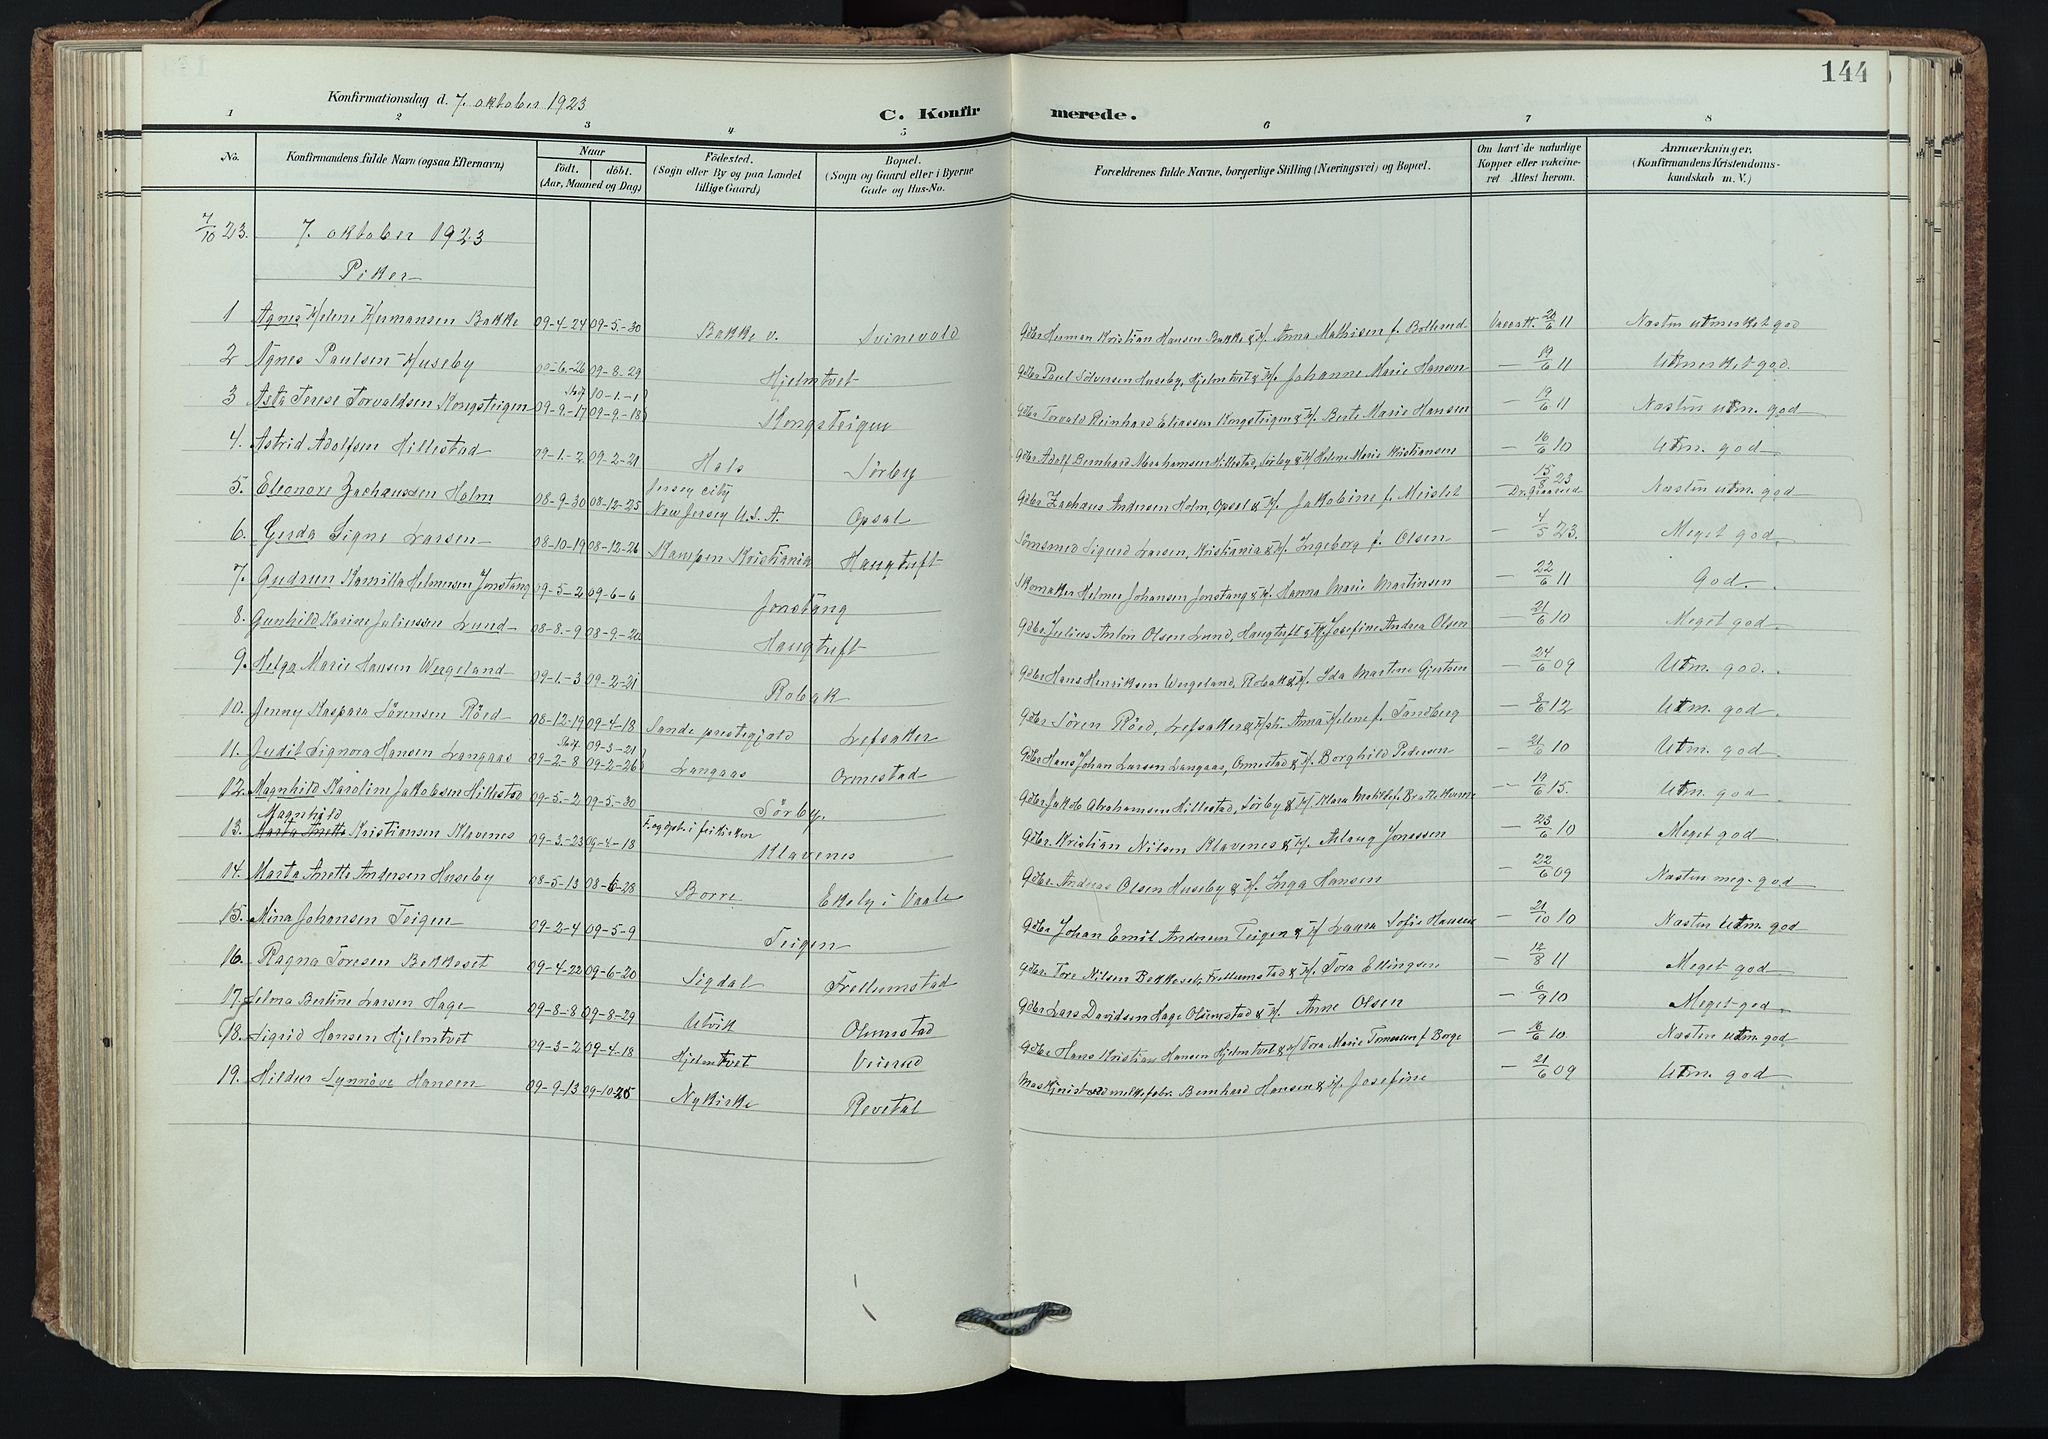 144
Konfirmationsdag d. 7. oktober 1923
C. Konfirmerede.
1 2 3 4 5 6 7 8
No. Konfirmandens fulde Navn (ogsaa Efternavn) Naar født. døbt. (Aar, Maaned og Dag) Fødested. (Sogn eller By og paa Landet tillige Gaard) Bopæl. (Sogn og Gaard eller i Byerne Gade og Hus-No. Forældrenes fulde Navne, borgerlige Stilling (Næringsvei) og Bopæl. Om havt de naturlige Kopper eller vakcineret. Attest herom. Anmærkninger. (Konfirmandens Kristendomskundskab m. V.)
7/10 23. 7. oktober 1923
Piker
1 Agnes Helene Hermansen Bakke 09-4-24 09-5-30 Bakke v. Svinevold Gdbr Herman Kristian Hansen Bakke & H. Anna Mathisen f. Bollerud Vaccatt. 20/6 11 Næsten utmerket god
2 Agnes Paulsen Huseby 09-6-26 09-8-29 Hjelmtvet Gdbr Paul Sölversen Huseby, Hjelmtvet & H. Johanne Marie Hansen — 19/6 11 Utmerket god.
3 Asta Terese Torvaldsen Kongsteigen 09-9-17 10-1-1 09-9-18 Kongsteigen Gdbr Torvald Reinhard Eliassen Kongsteigen & H. Berte Marie Hansen — 19/6 11 Næsten utm. god
4. Astrid Adolfsen Hillestad 09-1-2 09-2-21 Hals Sörby Gdbr Adolf Bernhard Abrahamsen Hillestad, Sörby & H. Helene Marie Kristiansen — 16/6 10 Utm. god
5. Eleonore Zachæussen Holm 08-9-30 08-12-25 Jersey City New Jersey U.S.A. Opsal Gdbr Zachæus Andersen Holm, Opsal & H. Jakobine f. Meislet 15/8 23 Næsten utm. god
6. Gerda Signe Larsen 08-10-19 08-12-26 Kampen Kristiania Haugtuft Tömsmed Sigurd Larsen, Kristiania & H. Ingeborg f. Olsen — 4/5 23. Meget god.
7. Gudrun Kamilla Helmersen Jonstang 09-5-2 09-6-6 Jonstang Skomaker Helmer Johansen Jonstang & H. Hanna Marie Martinsen — 22/6 11 God.
8. Gunhild Karine Juliussen Lund 08-8-9 08-9-20 Haugtuft Gdbr. Julius Anton Olsen Lund, Haugtuft & H. Josefine Andrea Olsen — 21/6 10 Meget god.
9. Helga Marie Hansen Wergeland 09-1-3 09-2-21 Robak Gdbr Hans Henriksen Wergeland, Robak & H. Ida Martine Gjertsen — 24/6 09 Utm. god.
10. Jenny Kaspara Sörensen Röed 08-12-19 09-4-18 Sande prestegjeld Lefsaker Gdbr Sören Röed, Lefsaker & H. Anna Helene f. Sandberg — 8/6 12 Utm. god.
11. Judit Signora Hansen Langaas 09-2-8 09-3-21 09-2-26 Langaas Ormestad Gdbr Hans Johan Larsen Langaas, Ormestad & H. Borghild Pedersen — 21/6 10 Utm. god
12. Magnhild Karoline Jakobsen Hillestad 09-5-2 09-5-30 Sörby. Gdbr Jakob Abrahamsen Hillestad, Sörby & H. Klara Matilde f. — 19/6 15. Utm. god
13. Magnhild Kristiansen Klavenes 09-3-23 09-4-18 i frikirken Klavenes Gdbr. Kristian Nilsen Klavenes & H. Aslaug Jonassen — 23/6 10 Meget god
14. Marta Anette Andersen Huseby 08-5-13 08-6-28 Borre Ekely i Vaale Gdbr. Andreas Olsen Huseby & H. Inga Hansen — 22/6 09 Næsten meg. god
15. Mina Johansen Teigen 09-2-4 09-5-9 Teigen Gdbr Johan Emil Andersen Teigen & H. Laura Sofie Hansen — 21/10 10 Næsten utm. god
16. Ragna Toresen Bekkeset 09-4-22 09-6-20 Sigdal Frellumstad Gdbr Tore Nilsen Bekkeset, Frellumstad & H. Tora Ellingsen — 12/8 11 Meget god
17. Selma Bertine Larsen Hage 09-8-8 09-8-29 Ulvik Olumstad Gdbr Lars Davidsen Hage Olumstad & H. Anne Olsen — 6/9 10 Meget god.
18. Sigrid Hansen Hjelmtvet 09-3-2 09-4-18 Hjelmtvet Veierød Gdbr Hans Kristian Hansen Hjelmtvet & H. Tora Marie f. Borge — 16/6 10 Næsten utm. god
19. Hildur Synnöve Hansen 09-9-13 09-10-25 Nykirke Revetal Maskinist ved melkefabr. Bernhard Hansen & H. Josefine — 21/6 09 Utm. god